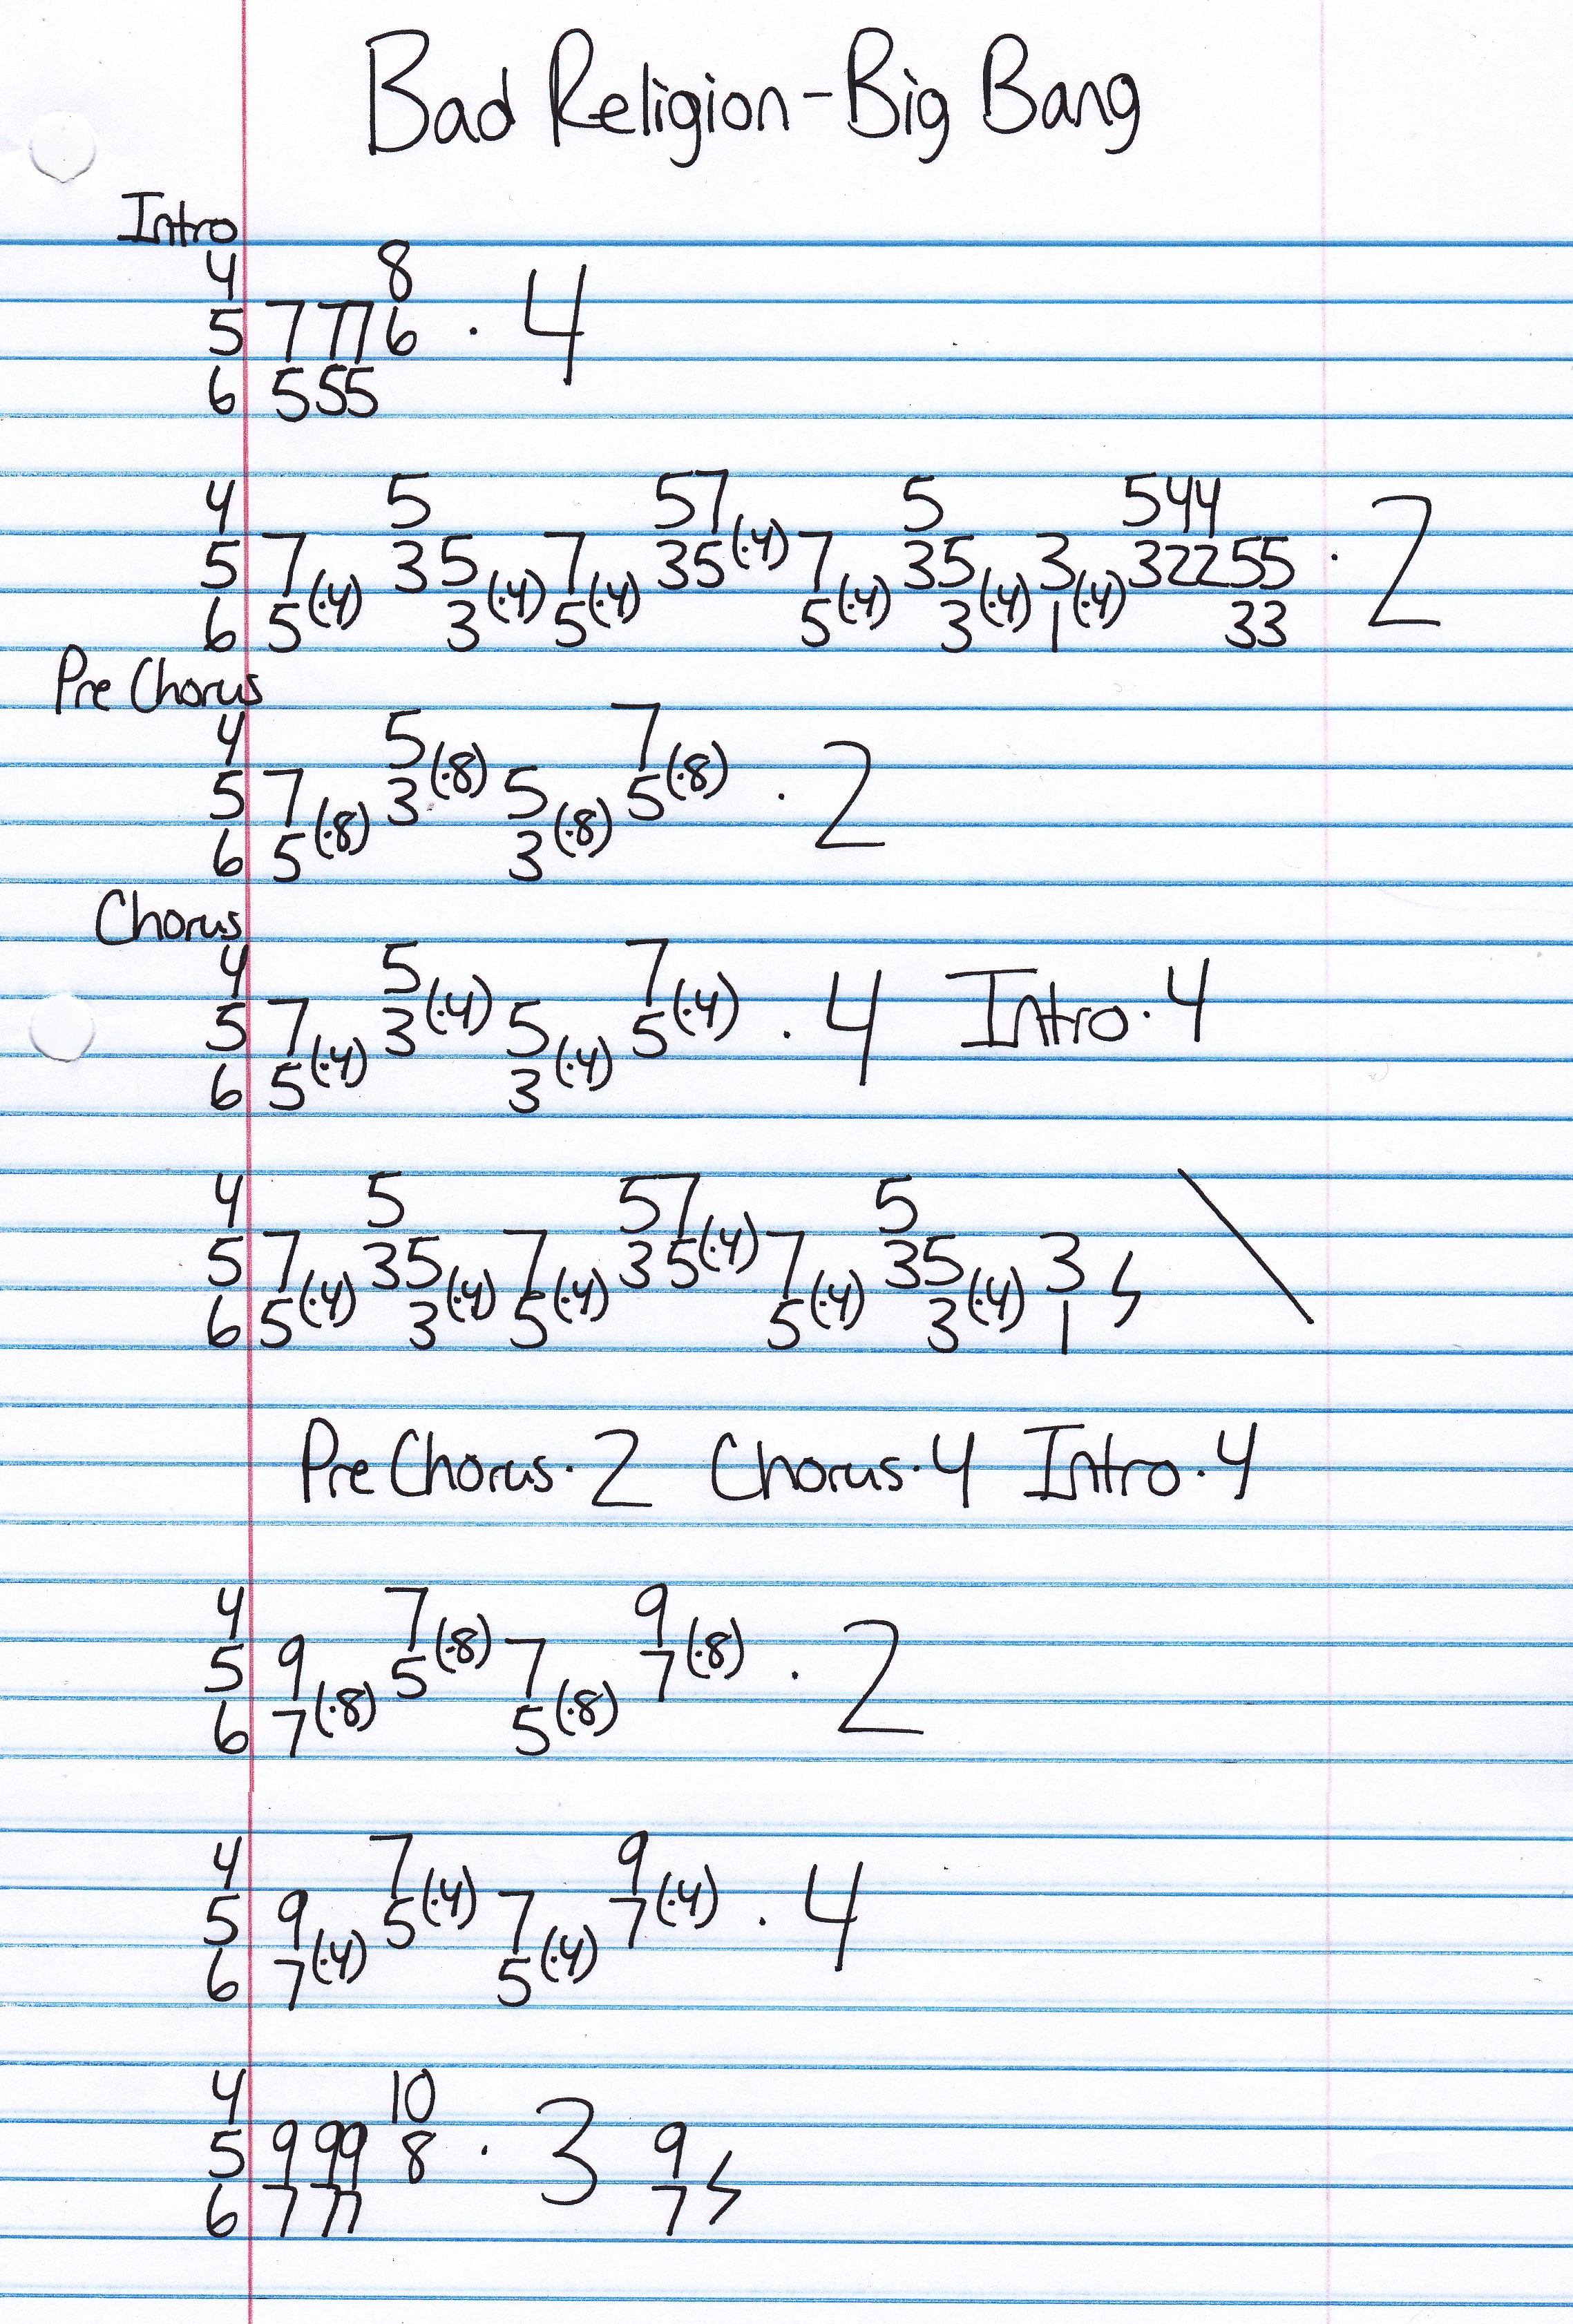 Bad Religion-Big Bang
Intro
4 8
5 7 77 6 · 4
6 5 55
4 5 57 5 544
5 7 35 7 35(·4) 7 35 3 32255 · 2
6 5(·4) 3(·4) 5(·4) 5(·4) 3(·4) 1(·4) 33
Pre Chorus
4 5 7
5 7 3(·8) 5 5(·8) · 2
6 5(·8) 3(·8)
Chorus
4 5 7
5 7 3(·4) 5 5(·4) · 4 Intro·4
6 5(·4) 3(·4)
4 5 57 5
5 7 35 7 35(·4) 7 35 3
6 5(·4) 3(·4) 5(·4) 5(·4) 3(·4) 1
Pre Chorus·2 Chorus·4 Intro·4
4 7 9
5 9 5(·8) 7 7(·8) · 2
6 7(·8) 5(·8)
4 7 9
5 9 5(·4) 7 7(·4) · 4
6 7(·4) 5(·4)
4 10
5 9 99 8 · 3 9
6 7 77 7